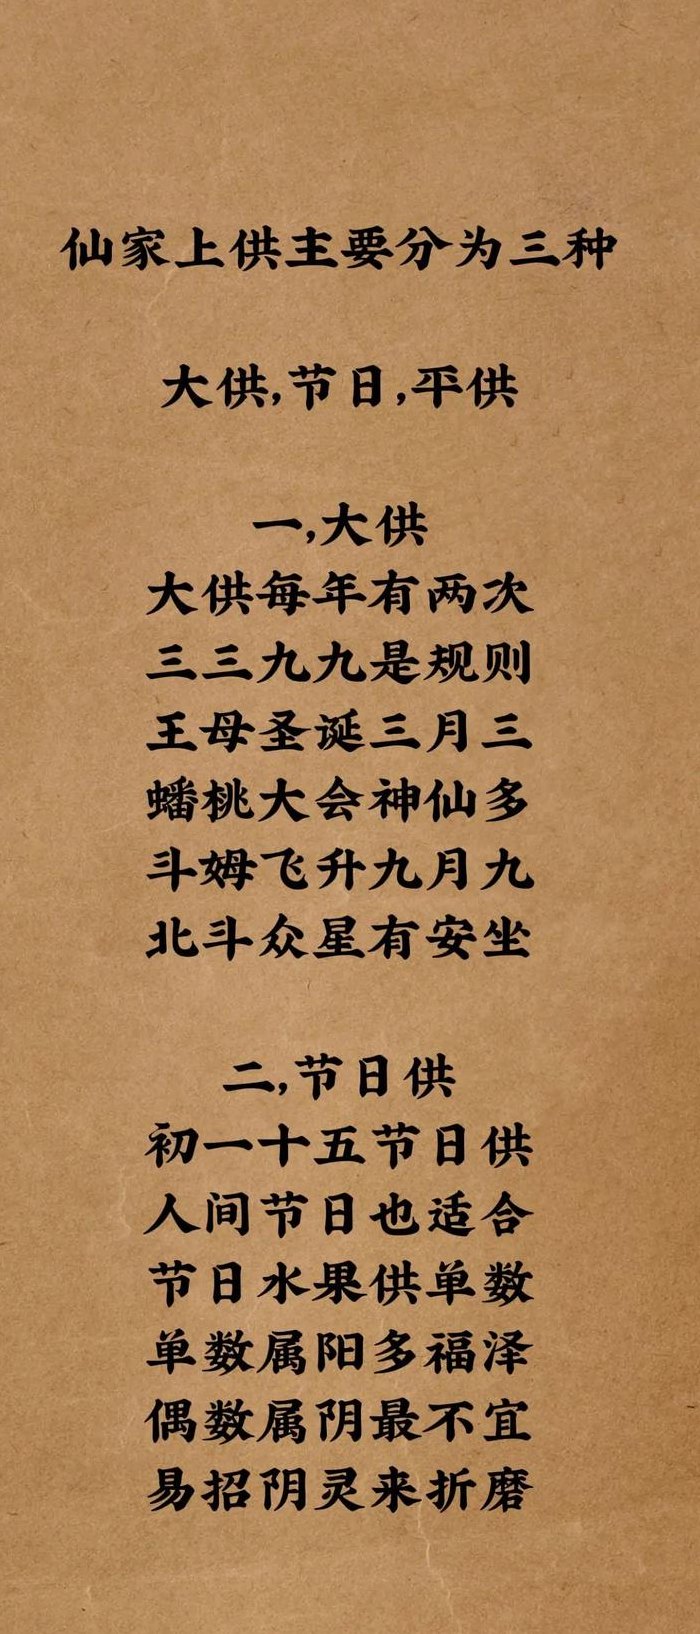 仙家上供主要分为三种
大供,节日,平供
一,大供
大供每年有两次
三三九九是规则
王母圣诞三月三
蟠桃大会神仙多
斗姆飞升九月九
北斗众星有安坐
二,节日供
初一十五节日供
人间节日也适合
节日水果供单数
单数属阳多福泽
偶数属阴最不宜
易招阴灵来折磨